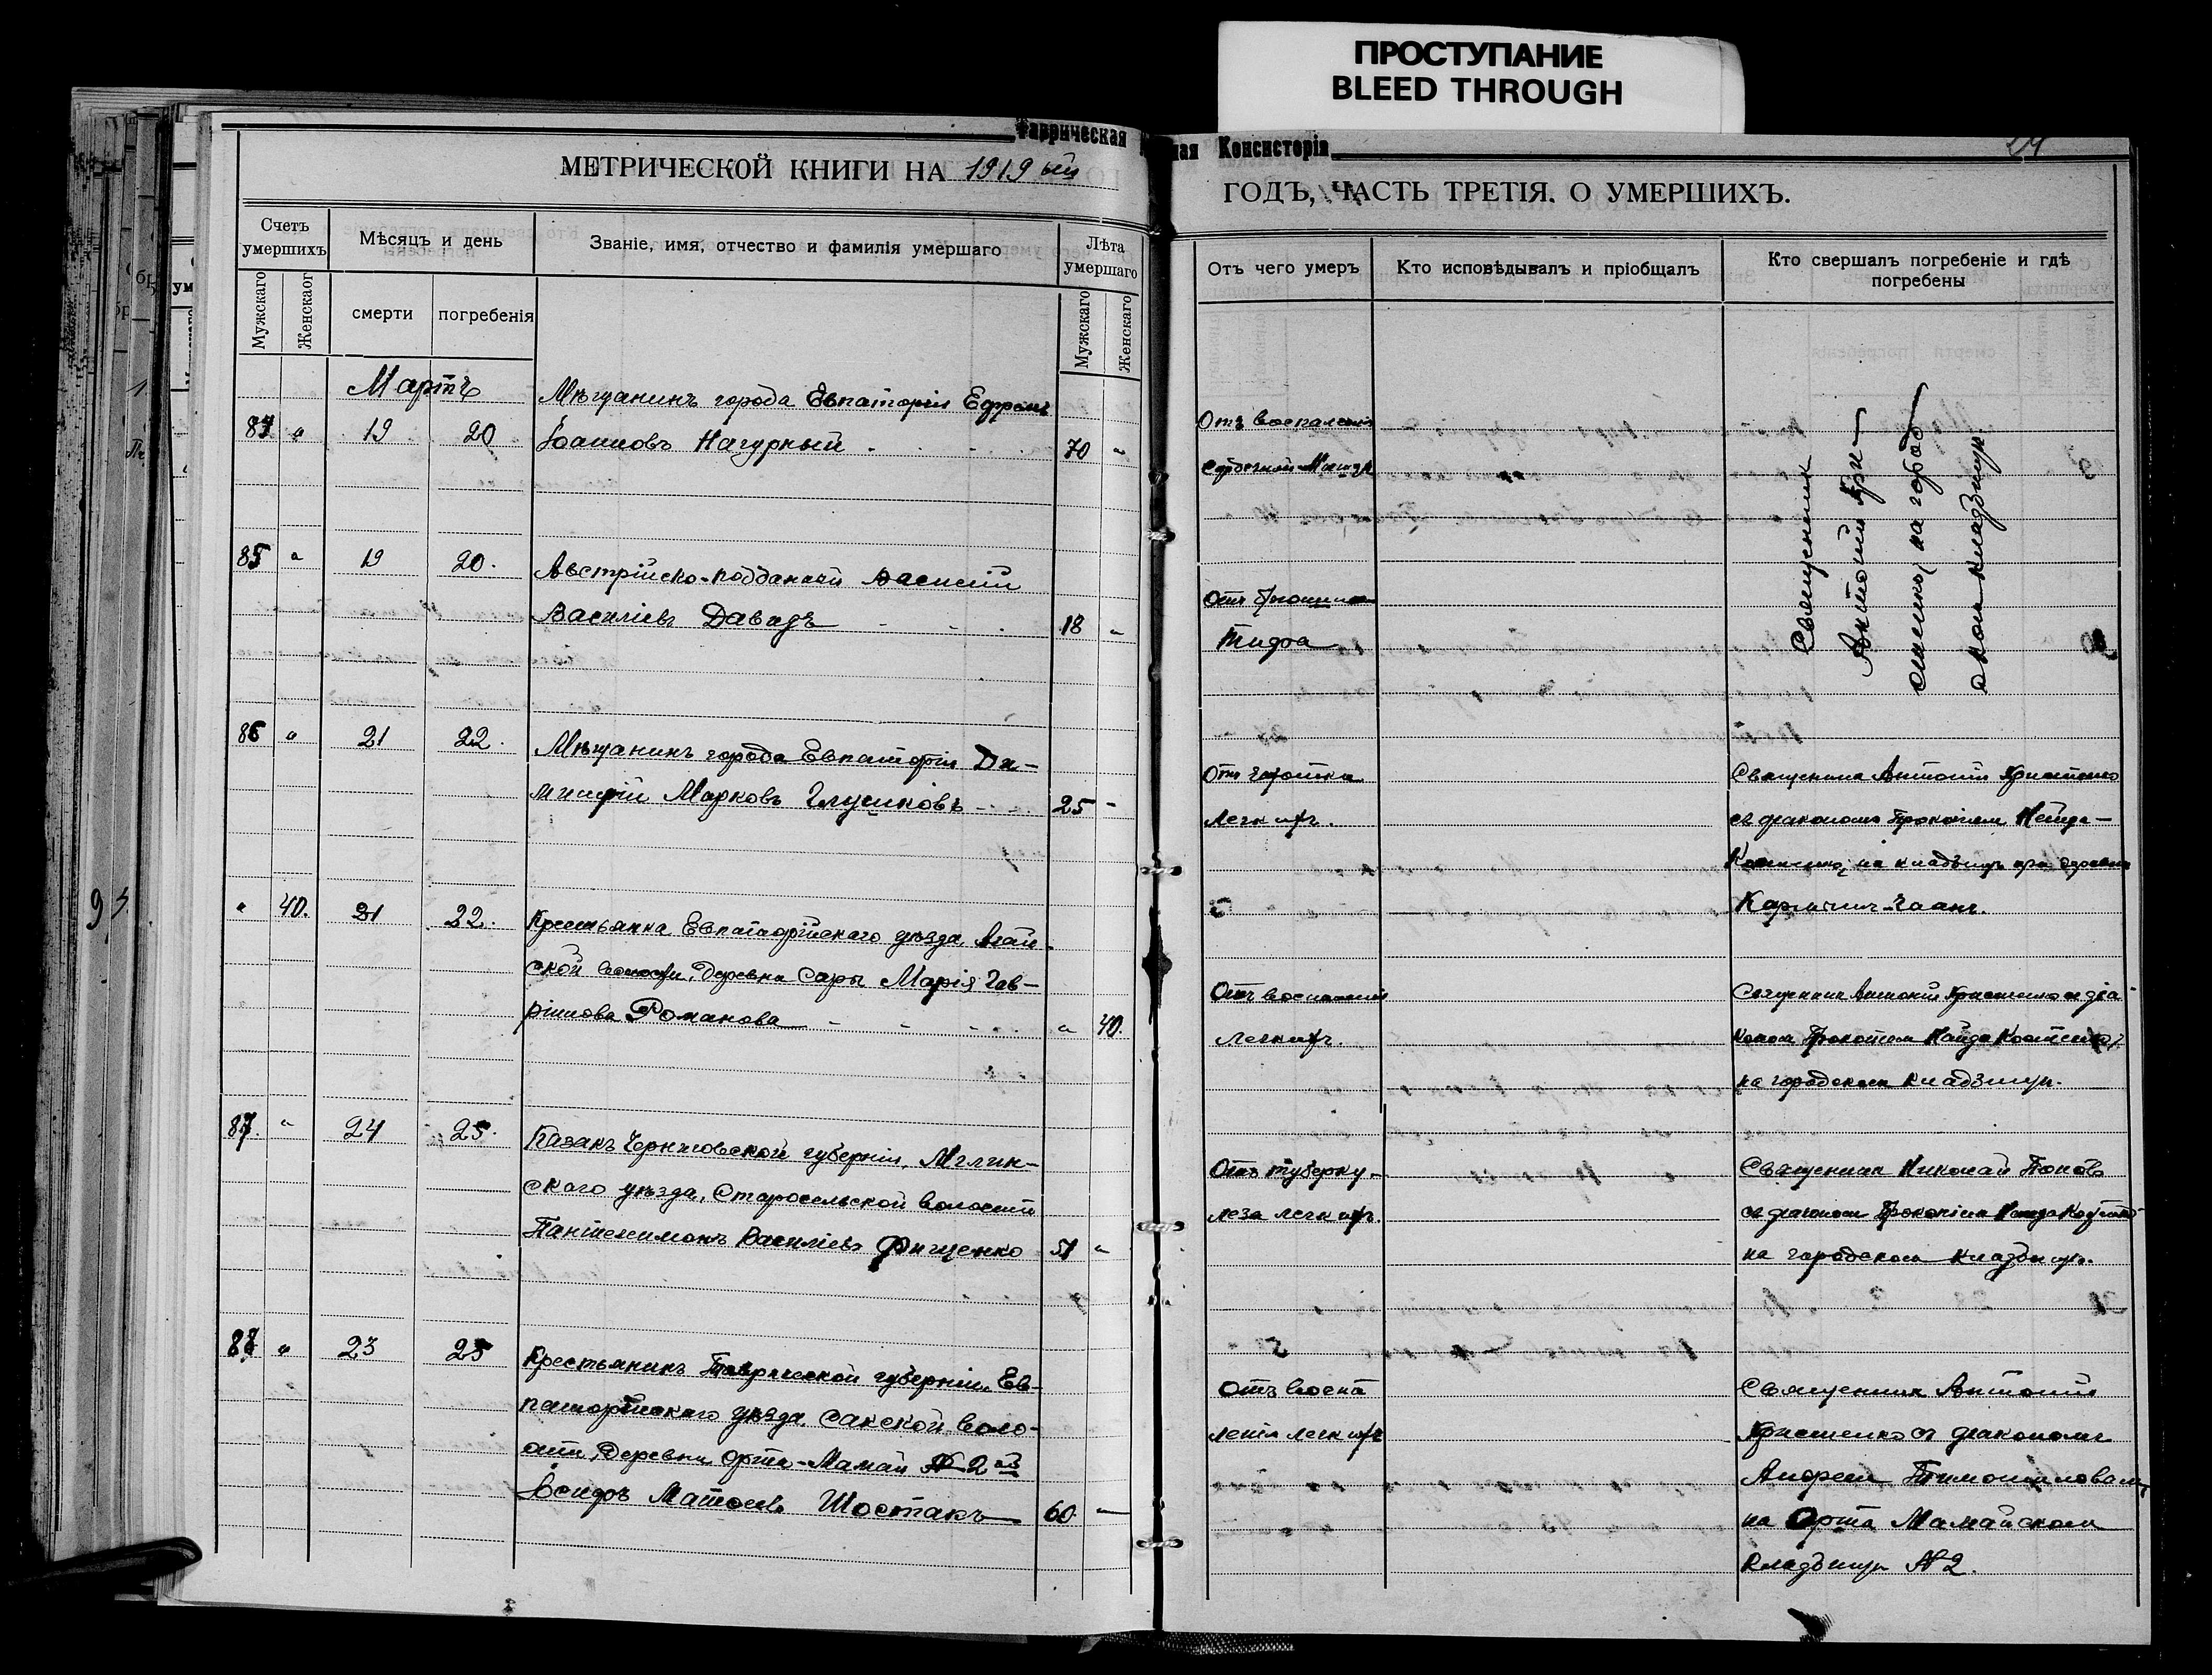 ПРОСТУПАНИЕ
BLEED THROUGH
Таврическая
ная Консисторія
24
МЕТРИЧЕСКОЙ КНИГИ НА 1919 ый
ГОДЪ, ЧАСТЬ ТРЕТІЯ. О УМЕРШИХЪ.
Счетъ умершихъ
Мужскаго
Женскаог
Мѣсяцъ и день
смерти
погребенія
Званіе, имя, отчество и фамилія умершаго
Лѣта умершаго
Мужскаго
Женскаго
Отъ чего умеръ
Кто исповѣдывалъ и пріобщалъ
Кто свершалъ погребеніе и гдѣ
погребены
Мартъ
Мѣщанинъ города Евпаторіи Ефремъ
" 19 20 Іоанновъ Нагурный 70 "
Отъ воспаленія
Священник
Антоній Кри-
на город
ском кладбищѣ.
85 " 19 20. Австрійско-подданный Василій
Василіевъ Давидъ 18 "
Отъ брюшного
Тифа
86 " 21 22. Мѣщанинъ города Евпаторіи Ди-
митрій Марковъ 25 "
Отъ
легкихъ.
Священник Антоній
съ діакономъ Прокопіем Найда-
на кладбищѣ при деревнѣ
" 40. 21 22. Крестьянка Евпаторійскаго уѣзда, Агай-
ской волости, деревни Сары Марія Гав-
ріилова Романова " 40.
Отъ воспаленія
легкихъ.
Священник Антоній и діа-
коном Прокопіем Найда
на городском кладбищѣ.
87. " 24 25. Казакъ Черниговской губерніи, Мглин-
скаго уѣзда, Старосельской волости
Пантелеимонъ Василіевъ Фищенко 51 "
Отъ туберку-
леза легкихъ.
Священник Николай Поповъ
съ діаконом Прокопіем Найда
на городском кладбищѣ.
88 " 23 25 Крестьянинъ Таврической губерніи, Ев-
паторійскаго уѣзда Сакской воло-
сти, деревни Орта-Мамай № 2 ой
Іосифъ Матѳеевъ Шостакъ 60
Отъ воспа
ленія легкихъ
Священник Антоній
съ діакономъ
Андреем
на Орта Мамайском
кладбищѣ № 2.